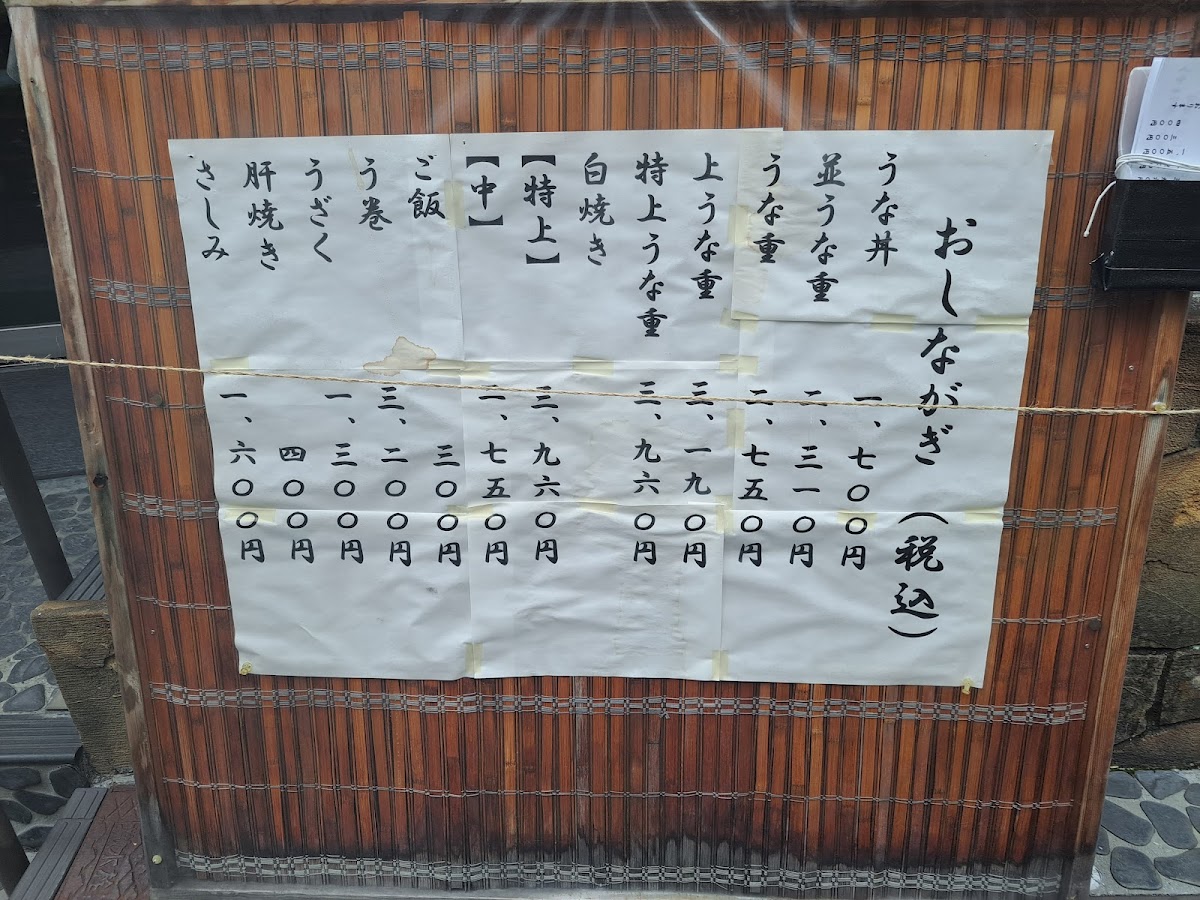 おしながぎ（税込）
うな丼 一、七〇〇円
並うな重 二、三一〇円
うな重 二、七五〇円
上うな重 三、一九〇円
特上うな重 三、九六〇円
白焼き
【特上】 三、九六〇円
【中】 二、七五〇円
ご飯 三〇〇円
う巻 三、二〇〇円
うざく 一、三〇〇円
肝焼き 四〇〇円
さしみ 一、六〇〇円